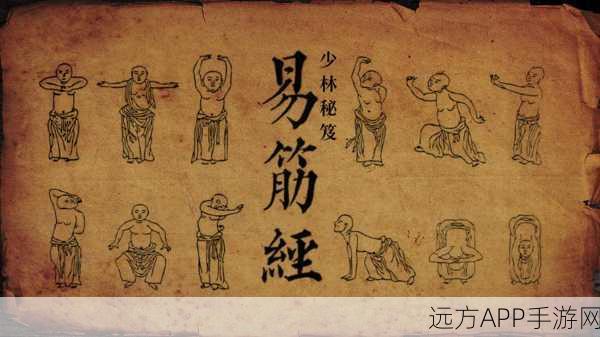 少林秘笈
易筋經
远方APP手游网